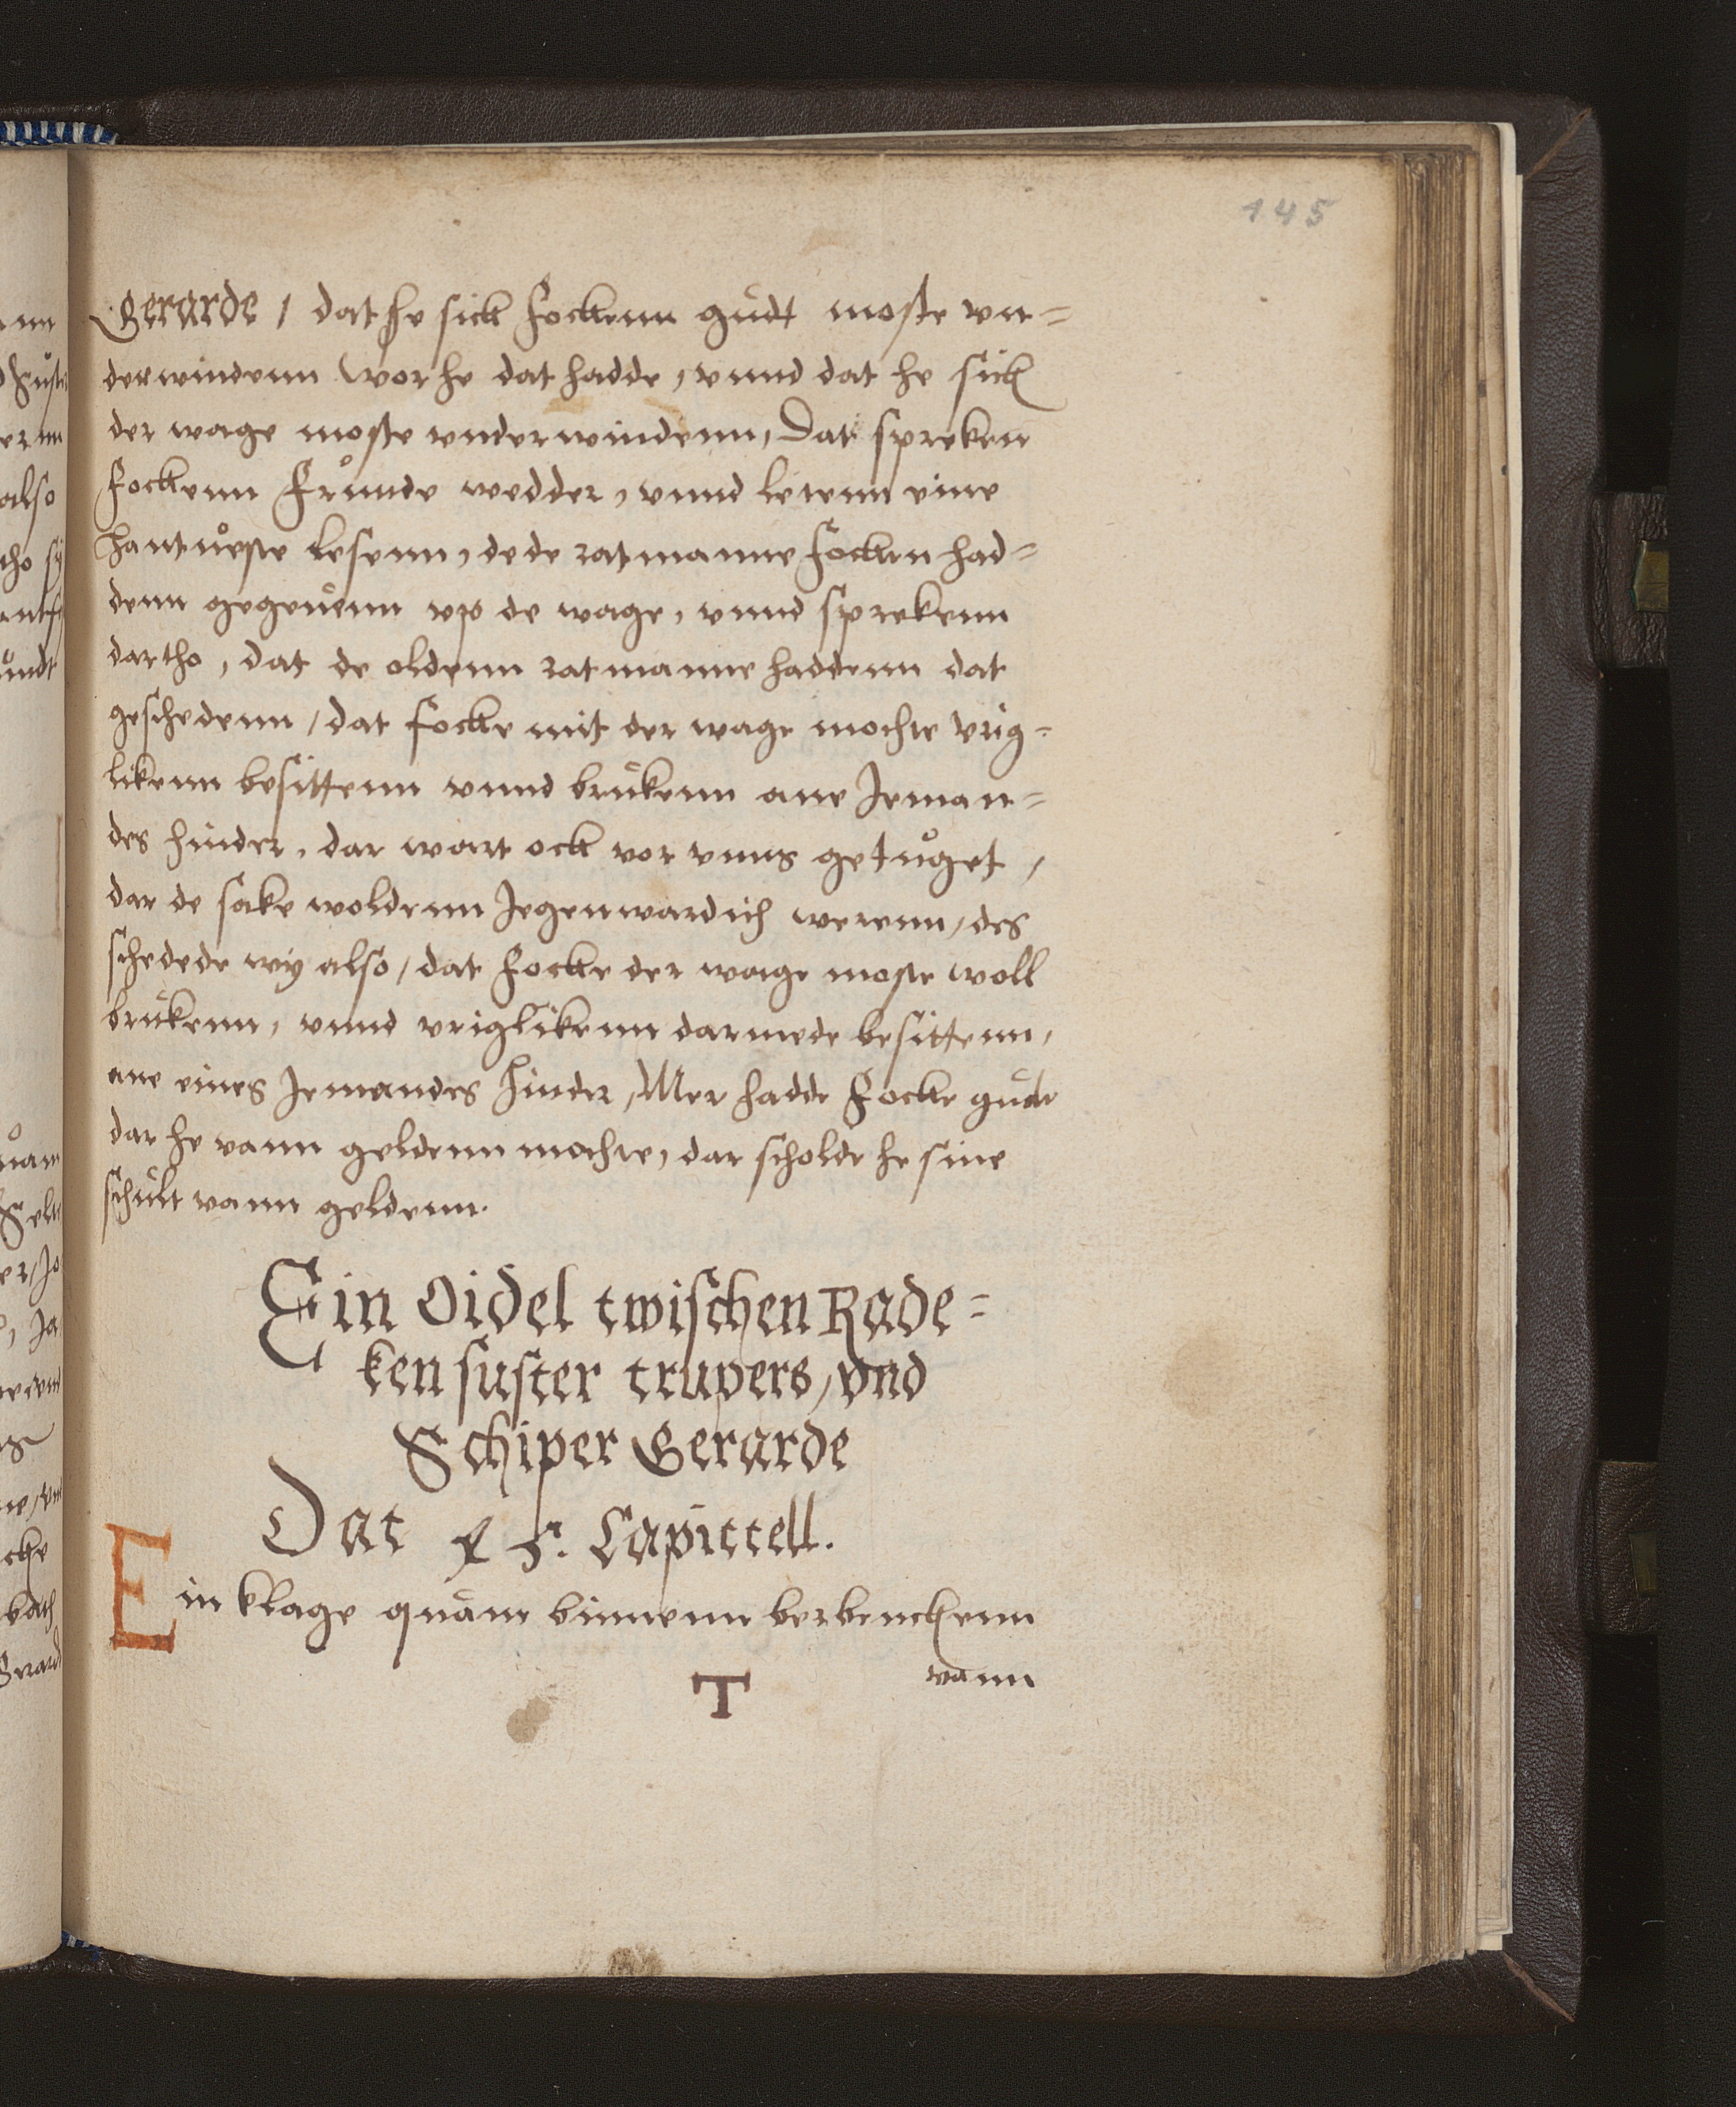 145
Gerarde / dat he sick Fockenn gudt moste vn=
derwindenn wor he dat hadde, vnnd dat he sick
der wage moste vnderwindenn, Dat spreken
Fockenn Frůnde wedder, vnnd letenn eine
hantueste lesenn, dede ratmanne Focken had=
denn gegeuenn vp de wage, vnnd sprekenn
dartho, dat de oldenn ratmanne haddenn dat
geschedenn / dat Focke mit der wage mochte vrig=
likenn besittenn vnnd brukenn ane Jeman=
des hinder, dar wart ock vor vnns getůget /
dar de sake woldenn Jegenwardich werenn / des
schedede wy also / dat Focke der wage moste woll
brukenn, vnnd vriglikenn darmede besittenn,
ane eines Jemandes hinder / Mer hadde Focke gude
dar he vann geldenn mochte, dar scholde he sine
schult vann geldenn.
Ein Oidel twischen Rade=
ken suster trupers / vnd
Schiper Gerarde
Dat Capittell.
Ein klage quam binnenn berbenckenn
vann
T